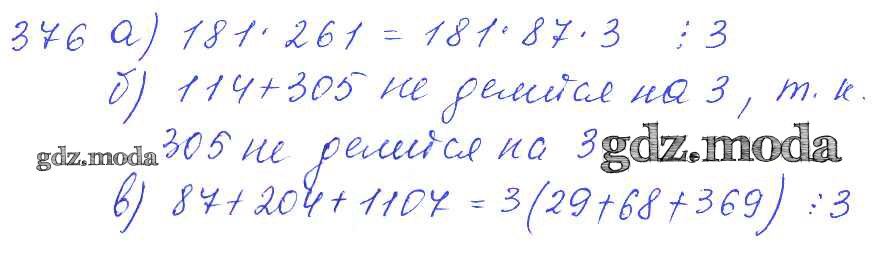 376 а) 181· 261 = 181· 87· 3 ⋮3
б) 114+305 не делится на 3, т. к.
gdz.moda 305 не делится на 3 gdz.moda
в) 87+204+1107 = 3(29+68+369) ⋮3